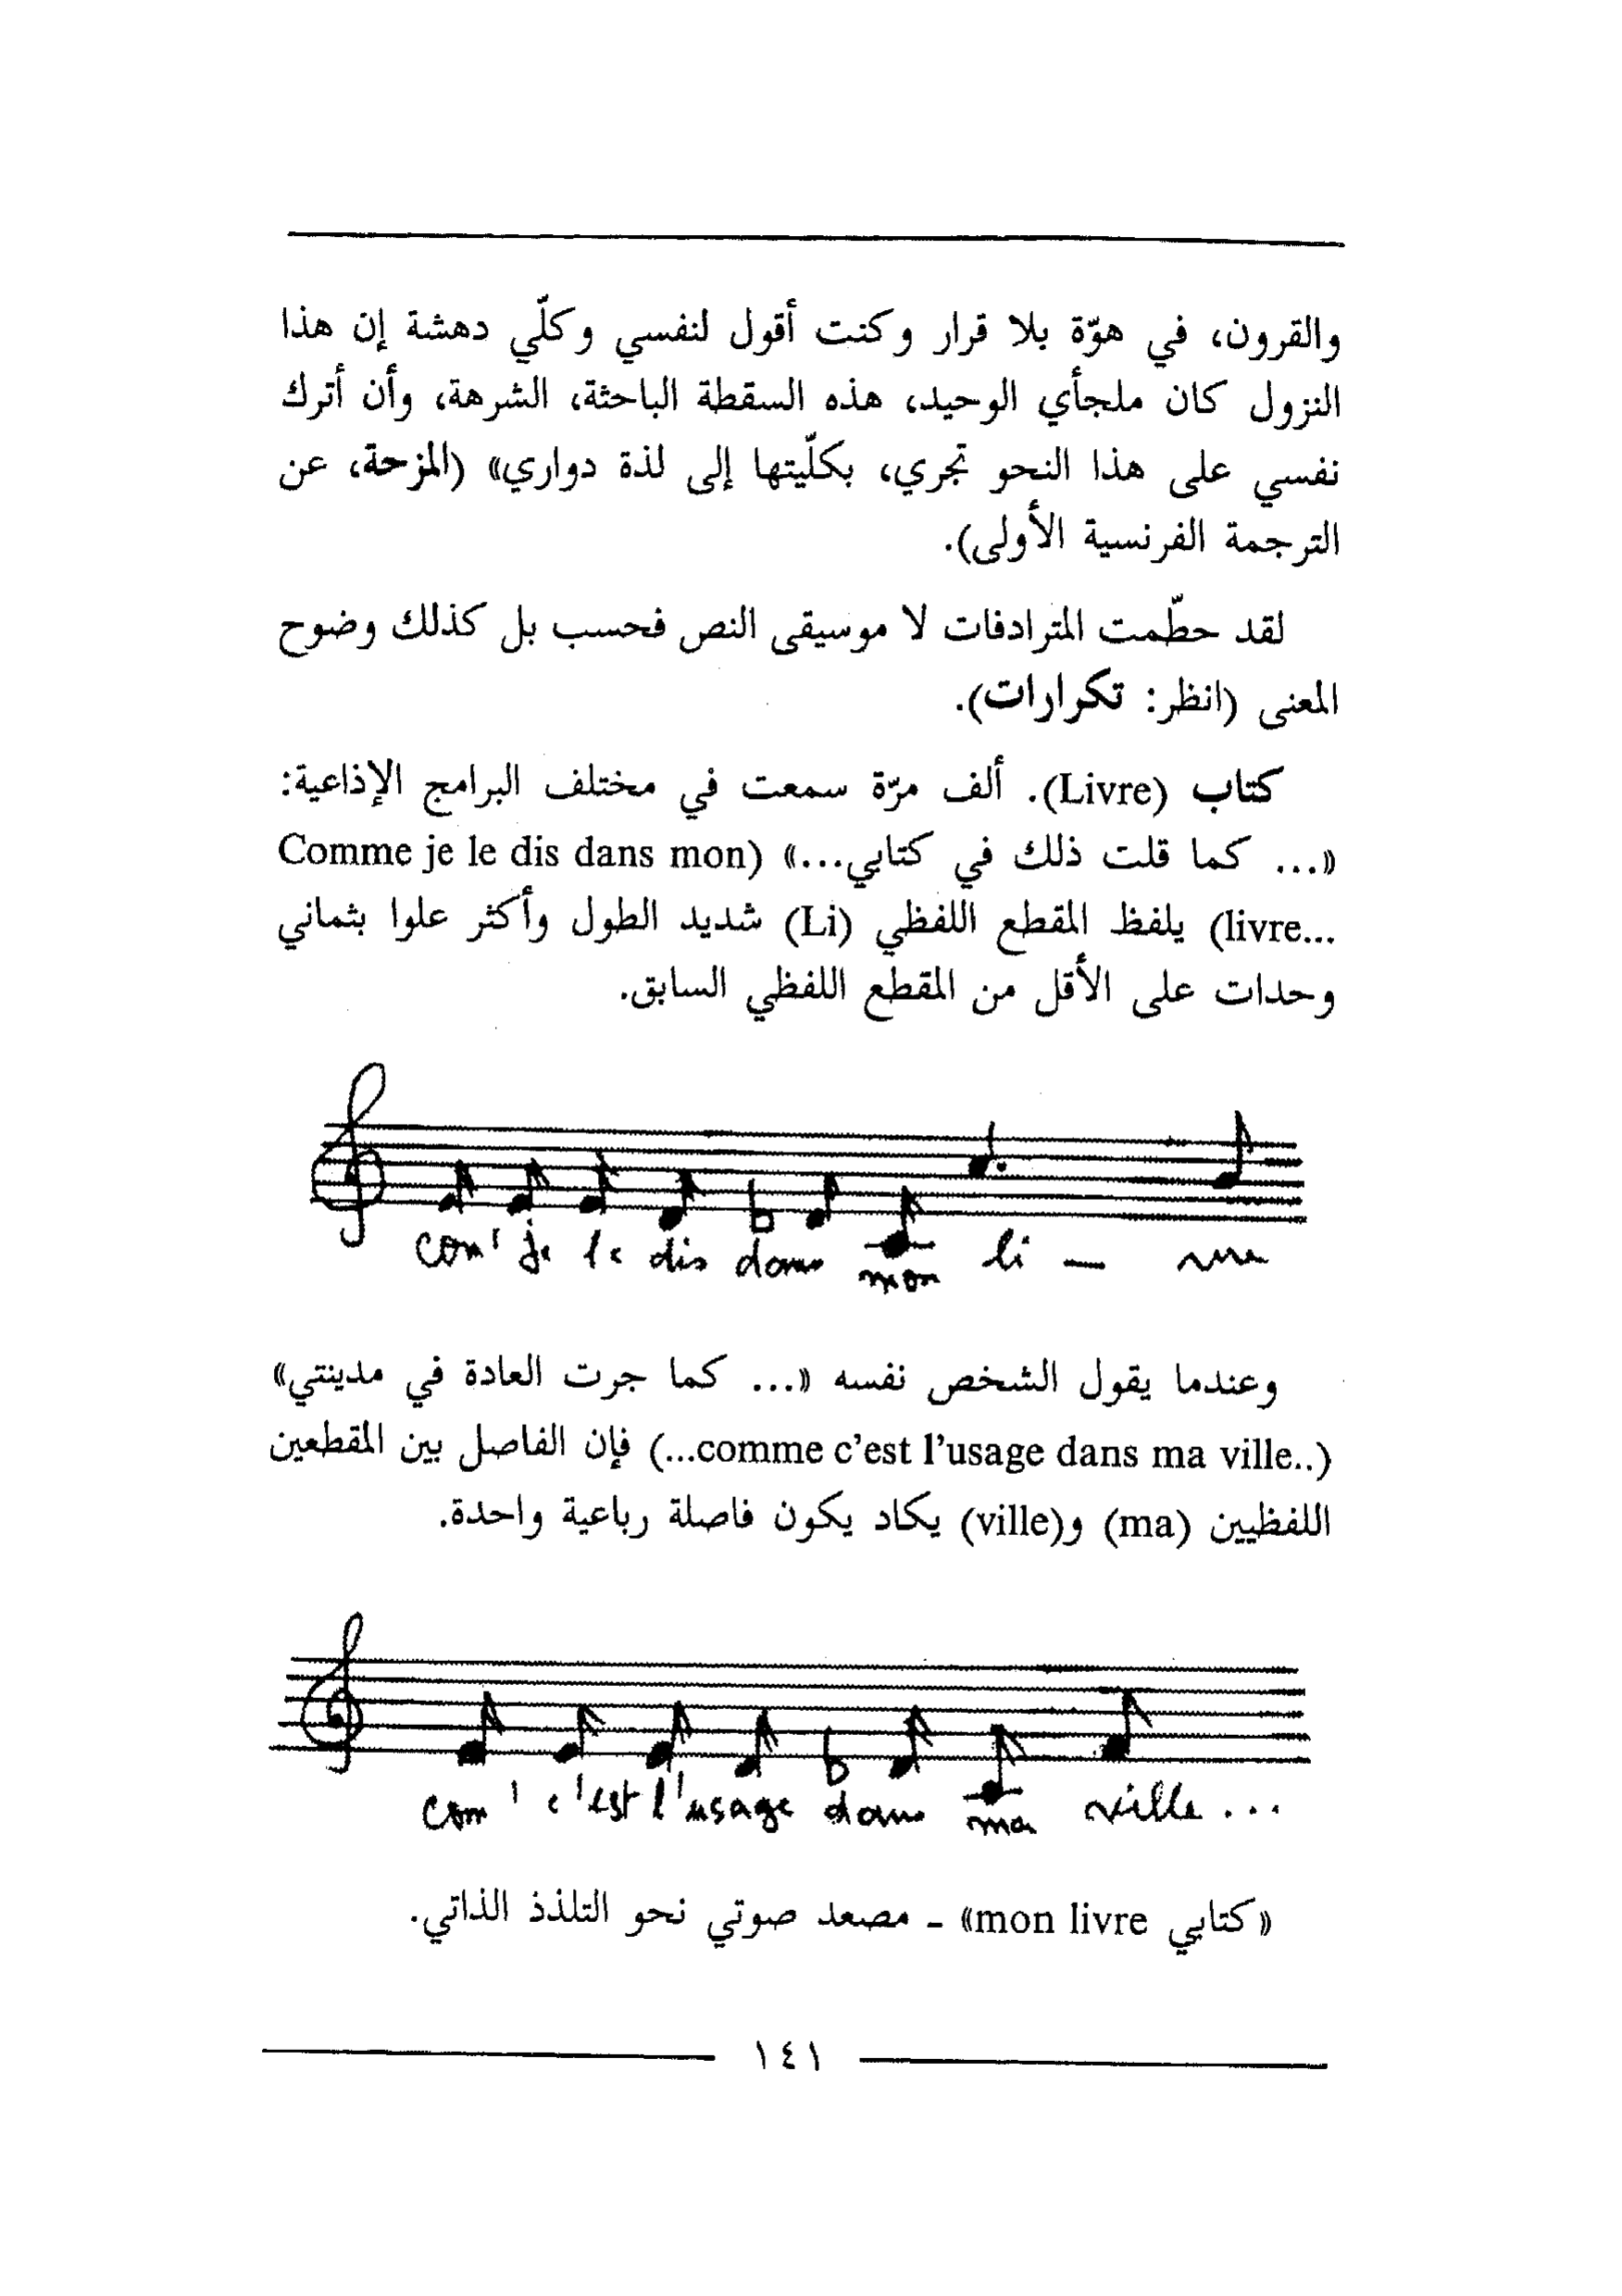 والقرون، في هوّة بلا قرار وكنت أقول لنفسي وكلّي دهشة إن هذا
النزول كان ملجأي الوحيد، هذه السقطة الباحثة، الشرهة، وأن أترك
نفسي على هذا النحو تجري، بكلّيتها إلى لذة دواري» (المزحة، عن
الترجمة الفرنسية الأولى).
لقد حطّمت المترادفات لا موسيقى النص فحسب بل كذلك وضوح
المعنى (انظر: تكرارات).
كتاب (Livre). ألف مرّة سمعت في مختلف البرامج الإذاعية:
«... كما قلت ذلك في كتابي...» (Comme je le dis dans mon
livre...) يلفظ المقطع اللفظي (Li) شديد الطول وأكثر علوا بثماني
وحدات على الأقل من المقطع اللفظي السابق.
com' je le dis dans mon li — vre
وعندما يقول الشخص نفسه «... كما جرت العادة في مدينتي»
(...comme c'est l'usage dans ma ville..) فإن الفاصل بين المقطعين
اللفظيين (ma) و(ville) يكاد يكون فاصلة رباعية واحدة.
com' c'est l'usage dans ma ville ...
«كتابي mon livre» - مصعد صوتي نحو التلذذ الذاتي.
١٤١